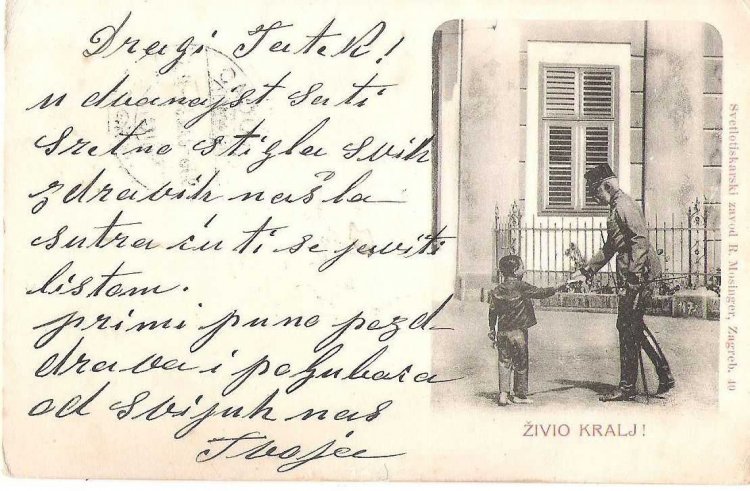 Dragi Tatek!
u dvanajst sati
sretno stigla svih
zdravih našla
sutra ću ti se javiti
listom.
primi puno pozd-
drava i poljubaca
od svijuh nas
Tvoja
ŽIVIO KRALJ!
Svetlotiskarski zavod R. Mosinger, Zagreb. 40